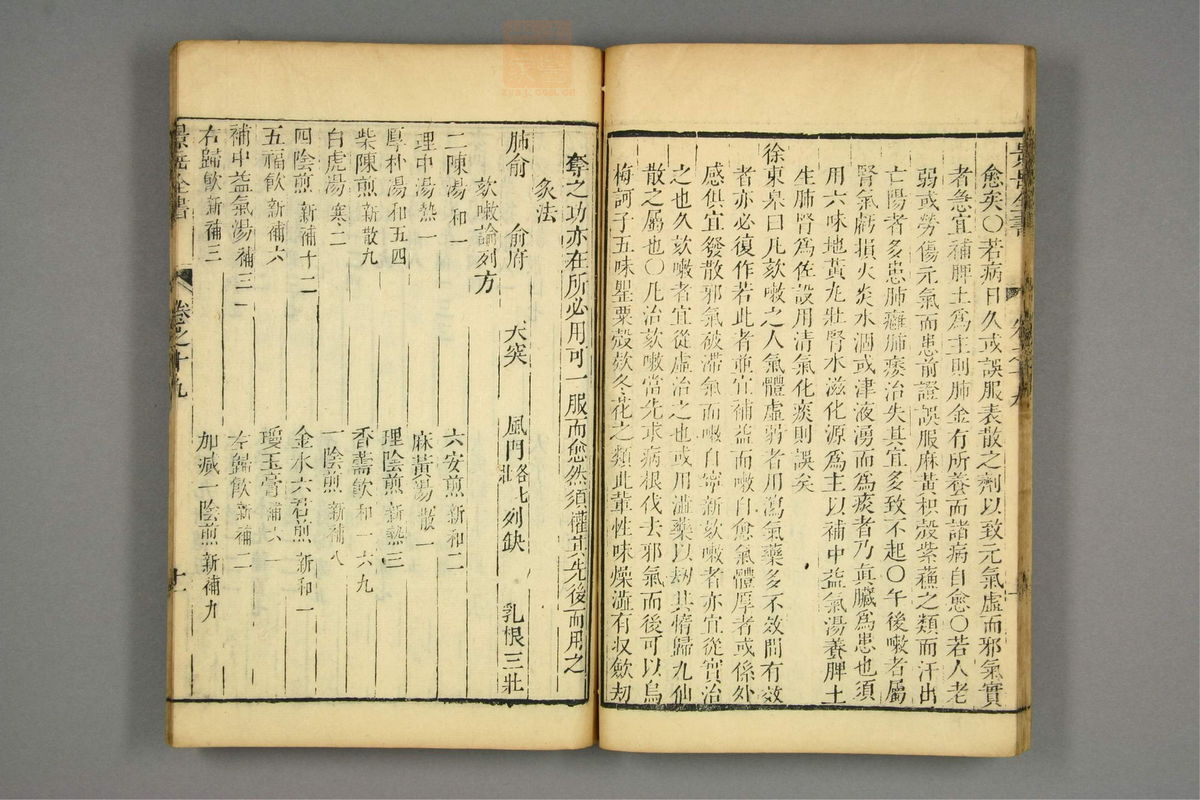 愈矣〇若病日久或誤服表散之劑以致元氣虛而邪氣實
者急宜補脾土爲主則肺金有所養而諸病自愈〇若人老
弱或勞傷元氣而患前證誤服麻黃枳殼紫蘇之類而汗出
亡陽者多患肺癰肺痿治失其宜多致不起〇午後嗽者屬
腎氣虧損火炎水涸或津液湧而爲痰者乃眞臟爲患也須
用六味地黃丸壯腎水滋化源爲主以補中益氣湯養脾土
生肺腎爲佐設用清氣化痰則誤矣
徐東皋曰凡欬嗽之人氣體虛弱者用瀉氣藥多不效間有效
者亦必復作若此者並宜補益而嗽自愈氣體厚者或係外
感俱宜發散邪氣破滯氣而嗽自寧新欬嗽者亦宜從實治
之也久欬嗽者宜從虛治之也或用澁藥以刼其惰歸九仙
散之屬也〇凡治欬嗽當先求病根伐去邪氣而後可以烏
梅訶子五味罌粟殼欵冬花之類此輩性味燥澁有収歛刼
奪之功亦在所必用可一服而愈然須權其先後而用之
灸法
肺俞 俞府 天突 風門七壯 列缺 乳根三壯
欬嗽論列方
二陳湯和一 六安煎新和二
理中湯熱一 麻黃湯散一
厚朴湯和五四 理陰煎新熱三
柴陳煎新散九 香薷飲和一六九
白虎湯寒二 一陰煎新補八
四陰煎新補十二 金水六君煎新和一
五福飲新補六 瓊玉膏補六一
補中益氣湯補三一 左歸飲新補二
右歸飲新補三 加減一陰煎新補九
景岳全書 卷之十九